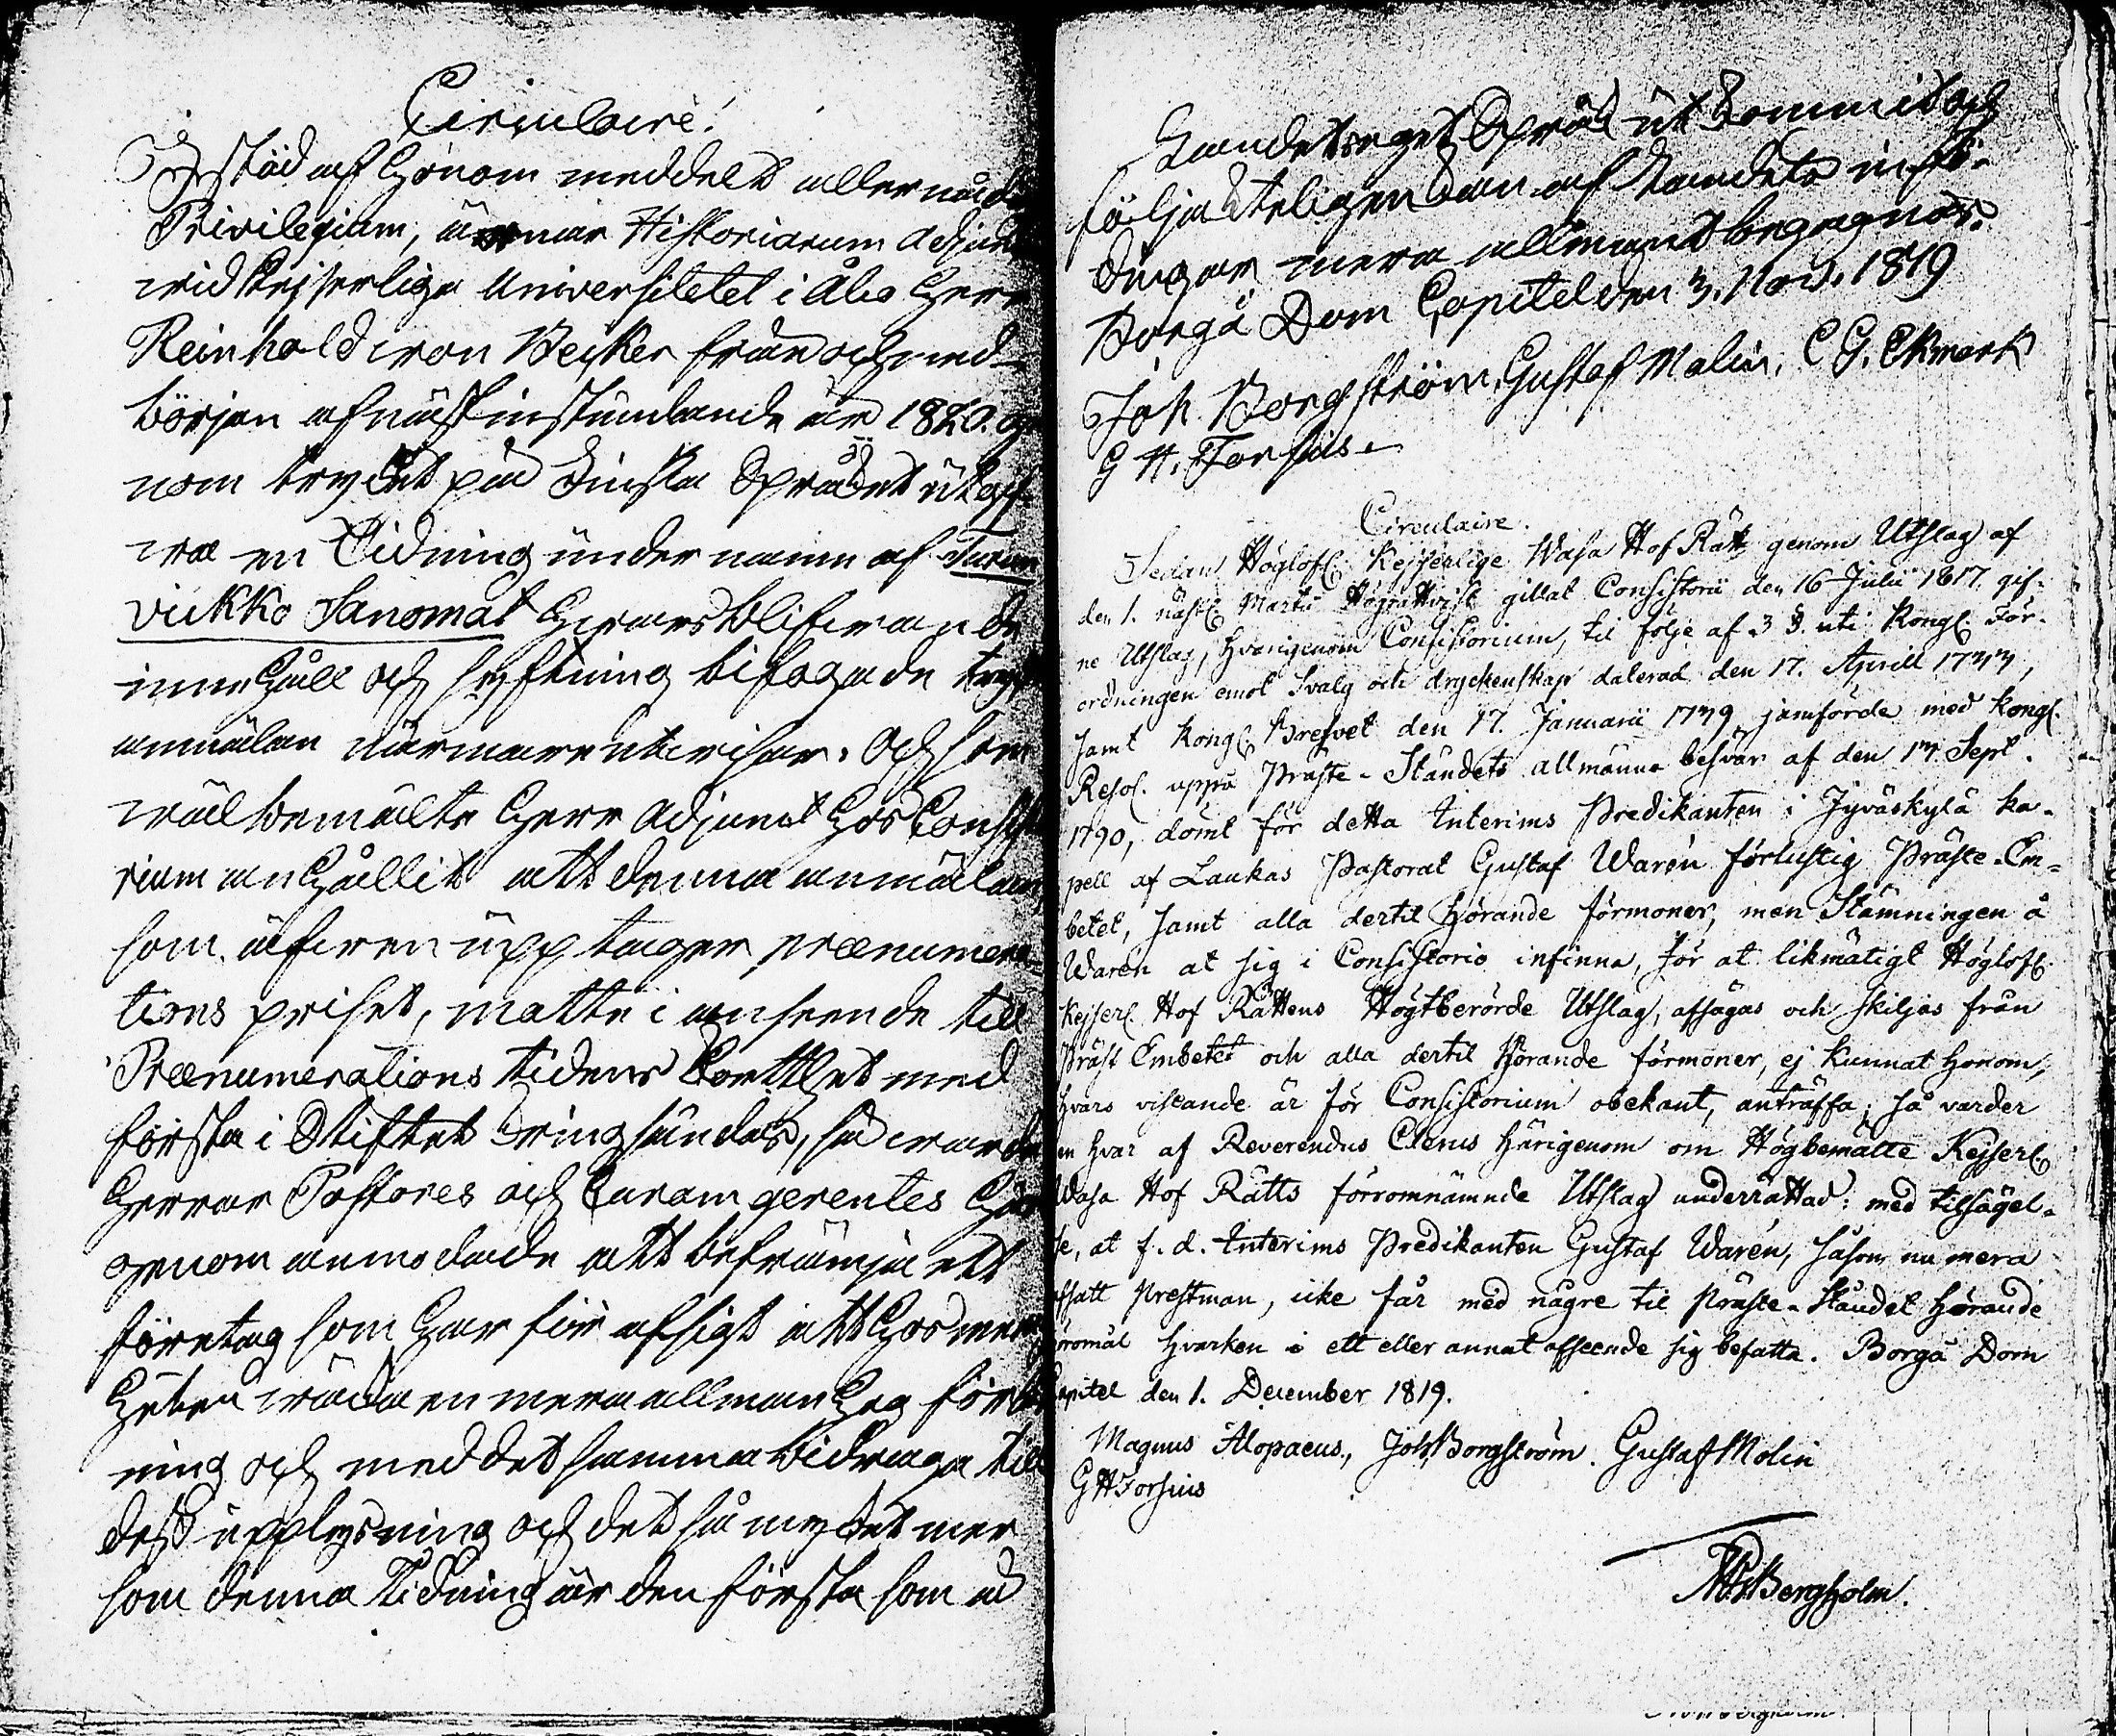 Circulaire!
I stöd af honom meddelt allernådi
Privilegium, ämnar Historiarum Adjunct
wid Kejserliga Universitetet i Åbo Herr
Reinhold von Becker från och med
början af nästinstundande år 1820. ge
nom trycket på Finska Språket utgif
wa en Tidning under namn af Turun
viikko Sanomat hwars blifwande
innehåll och syftning bifogade tryckt
anmälan närmare utwisar. Och som
wälbemälte Herr Adjunct hos Consisto
rium anhållit att denna anmälan,
som äfwen upptager prænumera-
tions priset, måtte i anseende till
Prænumerations tidens korthet med
första i Stiftet kringsändas, så warda
Herrar Pastores och Curam gerentes här
genom anmodade att befrämja ett
företag som har för afsigt att hos men
heten wäcka en mera allmän håg för läs
ning och med det samma bidraga till
dess upplysning och det så mycket mer
som denna Tidning är den första som å
Landets eget Språk utkommit och
följakteligen kan af Landets inföd-
dingar mera allmänt begagnas.
Borgå Dom Capitel den 3. Nov. 1819
Joh. Borgström, Gustaf Molin, C G. Ekmark
G H. Forsius.
Circulaire.
Sedan Höglofl. Kejserlige Wasa Hof Rätt genom Utslag af
den 1. nästl. Martii Högrättvist gillat Consistorii den 16 Julii 1817. gif-
ne Utslag, hvarigenom Consistorium, til följe af 3 §. uti Kongl. För-
ordningen emot Svalg och dryckenskap daterad den 17. Aprill 1733,
samt Kongl. Brefvet den 17. Januarii 1739 jemförde med Kongl.
Resol. uppå Präste-Ståndets allmänna besvär af den 13. Sept.
1790, dömt för detta Interims Predikanten i Jyväskylä ka-
pell af Laukas Pastorat Gustaf Warén förlustig Präste-Em-
betet, samt alla dertil hörande förmoner, men Stämningen å
Warén at sig i Consistorio infinna, för at likmätigt Höglofl.
Kejserl. Hof Rättens Högtberörde Utslag, afsägas och skiljas från
Präst Embetet och alla dertil hörande förmoner, ej kunnat honom,
hvars vistande är för Consistorium obekant, anträffa; så varder
en hvar af Reverendus Clerus härigenom om Högbemälte Kejserl.
Wasa Hof Rätts förromnämnde Utslag underrättad: med tilsägel-
se, at f. d. Interims Predikanten Gustaf Warén, såsom nu mera
afsatt Prestman, icke får med någre til Präste-Ståndet hörande
öromål hvarken i ett eller annat afseende sig befatta. Borgå Dom
Capitel den 1. December 1819.
Magnus Alopaeus., Joh Borgström. Gustaf Molin
G H Forsius
Bergholm.